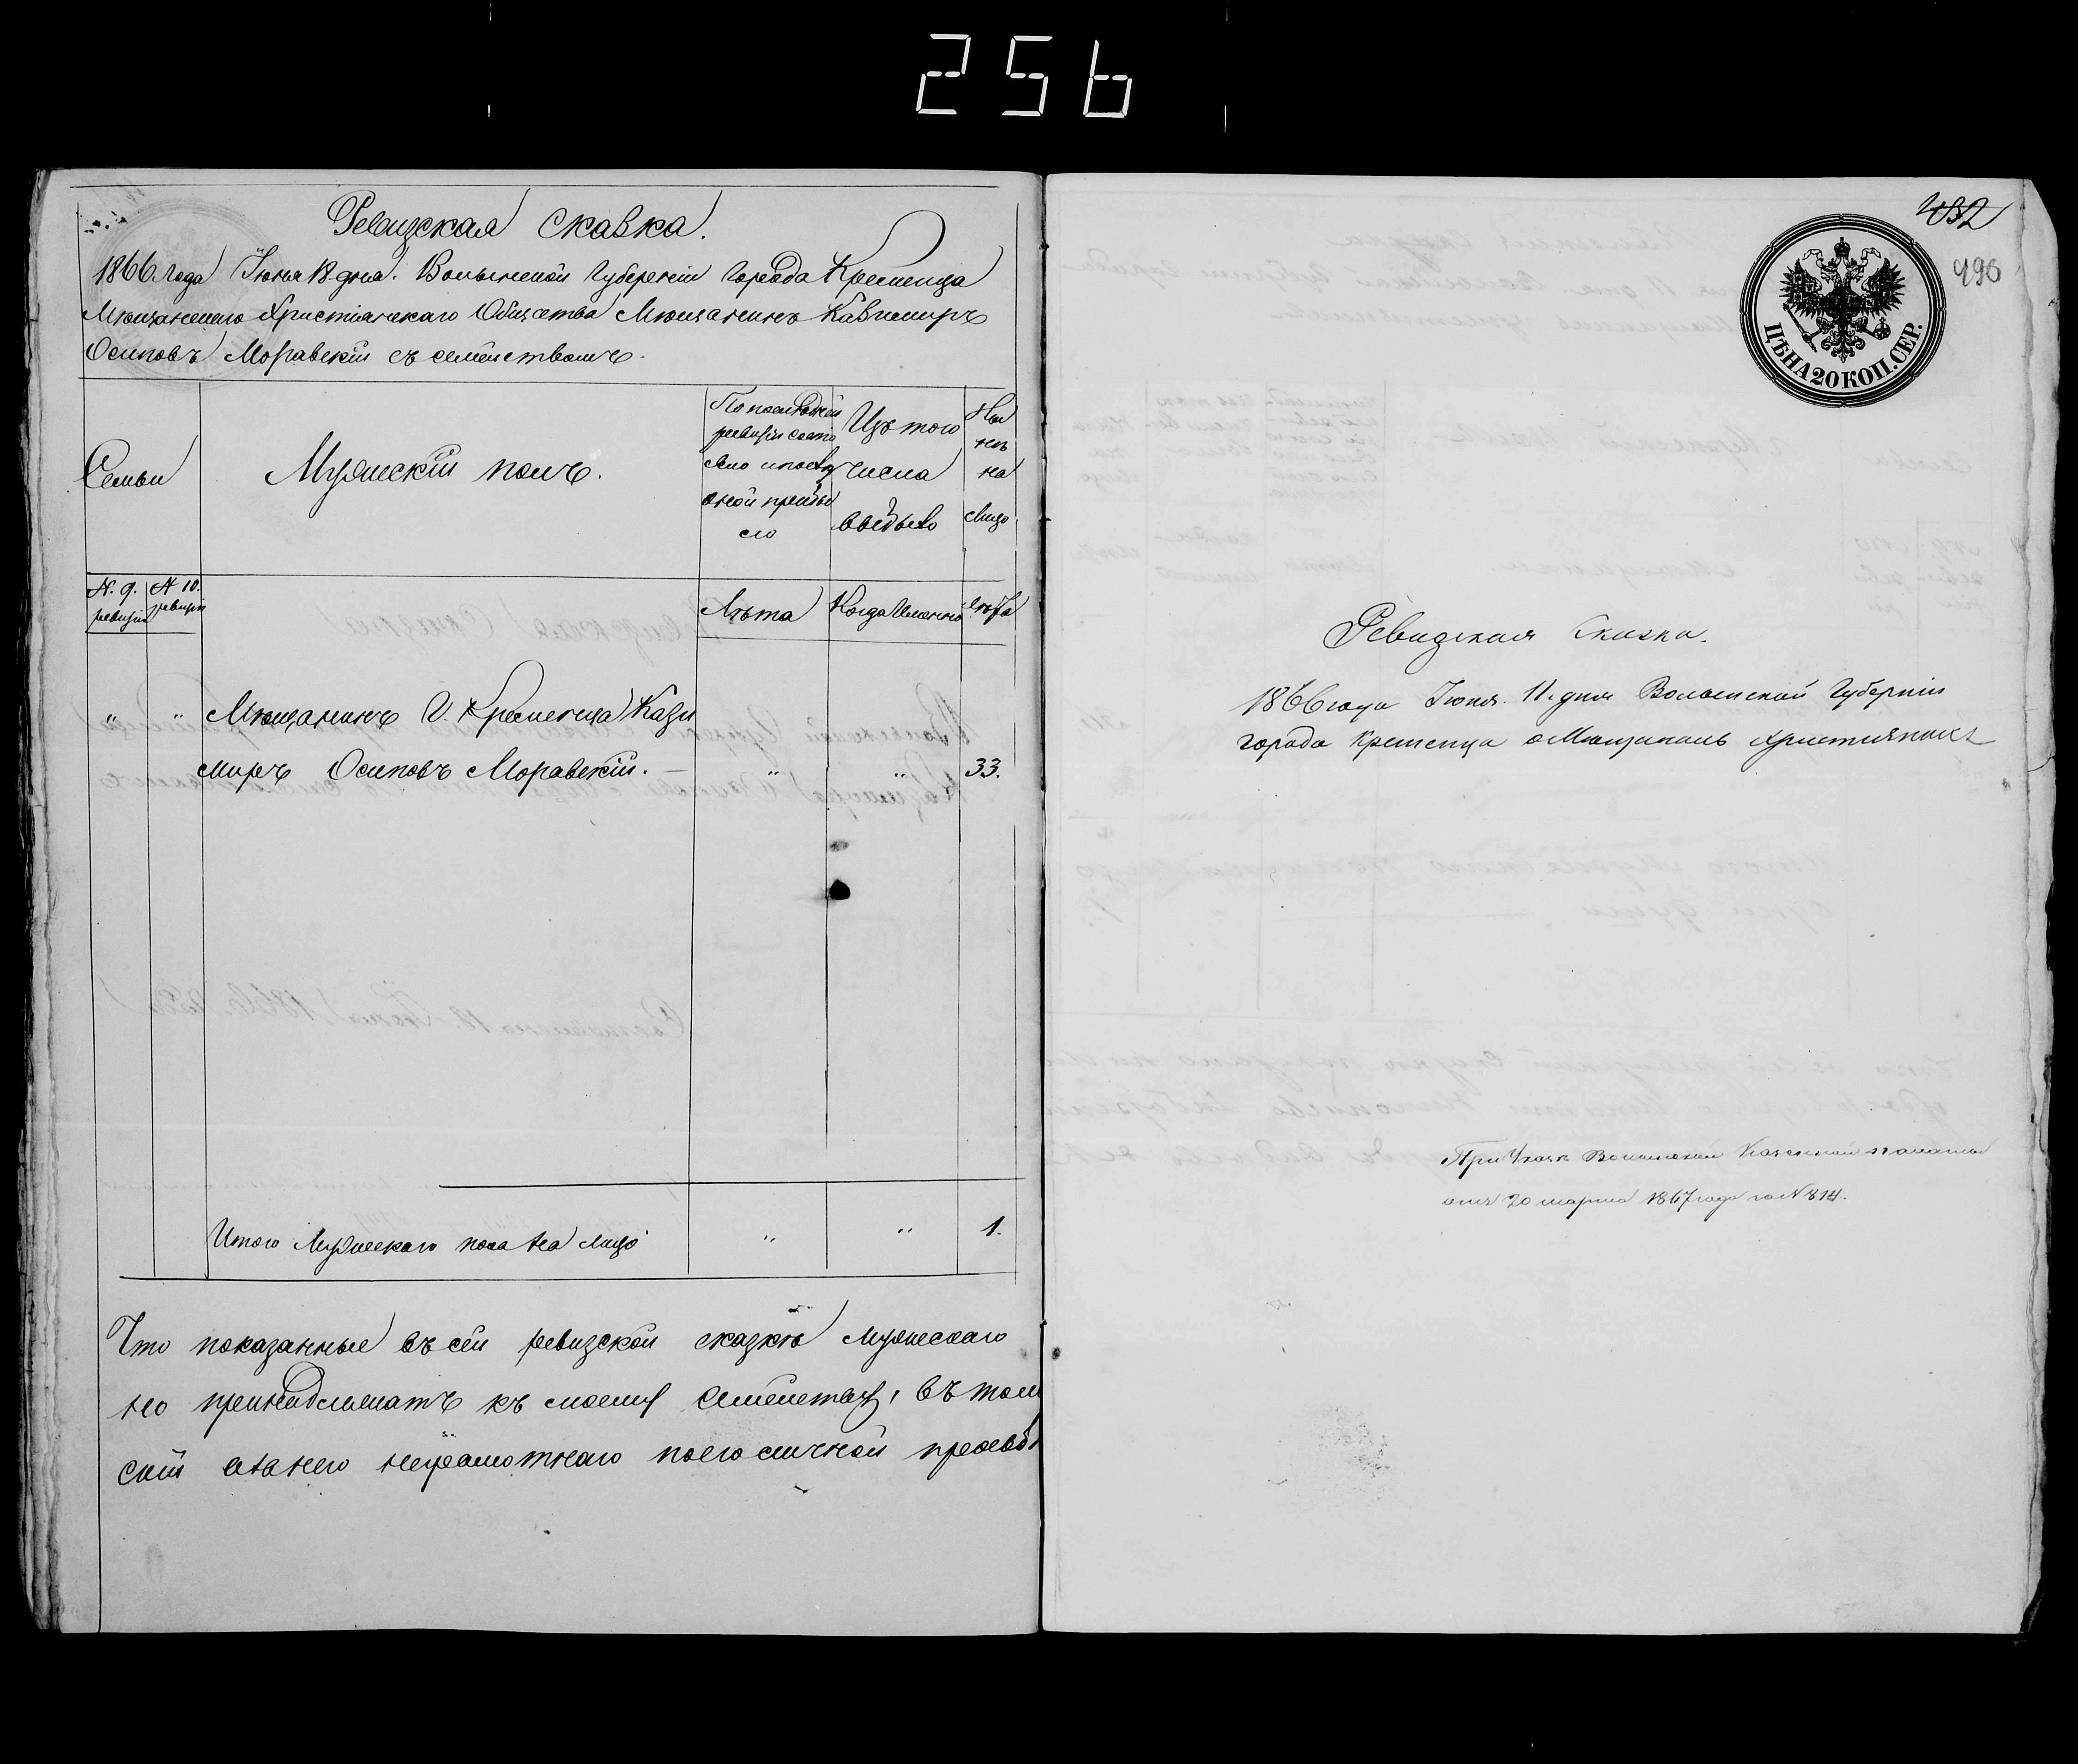 256
Ревизская сказка.
1866. Года Іюня 18. дня. Волынской Губерніи Города Кременца
Мѣщанскаго Христіанскаго Общества Мѣщанинъ Казимиръ
Осиповъ Моравскій съ семействомъ.
Семьи
Мужескій полъ.
По последней
ревизіи состо
яло и после
оной прибы
ло
Изъ того
числа
выбыло
Ны
нѣ
на
лицо
N. 9. ревизіи
N 10. ревизіи
Лѣта
Когда именно
Лѣта
" " Мѣщанинъ Г. Кременца Кази
миръ Осиповъ Моравскій. — " " 33.
Итого Мужескаго пола на лицо " " 1.
Что показанные въ сей ревизской сказкѣ мужескаго
но принадлежатъ къ моему семейству, въ том
неграмотнаго по его личной прозьб
432
496
ЦѢНА 20 КОП. СЕР.
Ревизская Сказка.
1866 года Іюня. 11. дня Волынской Губерніи
города Кременца о Мѣщанахъ христіянахъ
При Указѣ Волынской Казенной палаты
отъ 20 марта 1867 года за N 814.